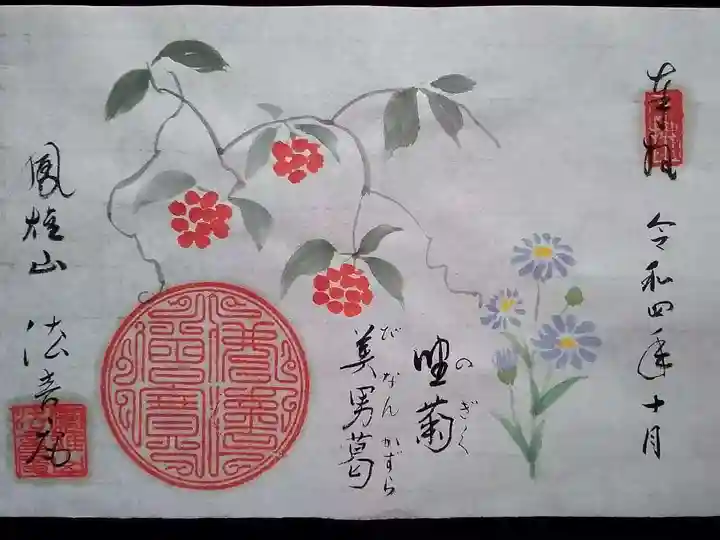 奉拝
令和四年十月
野菊
のぎく
美男葛
びなんかずら
鳳雄山
法音庵
佛法僧寳